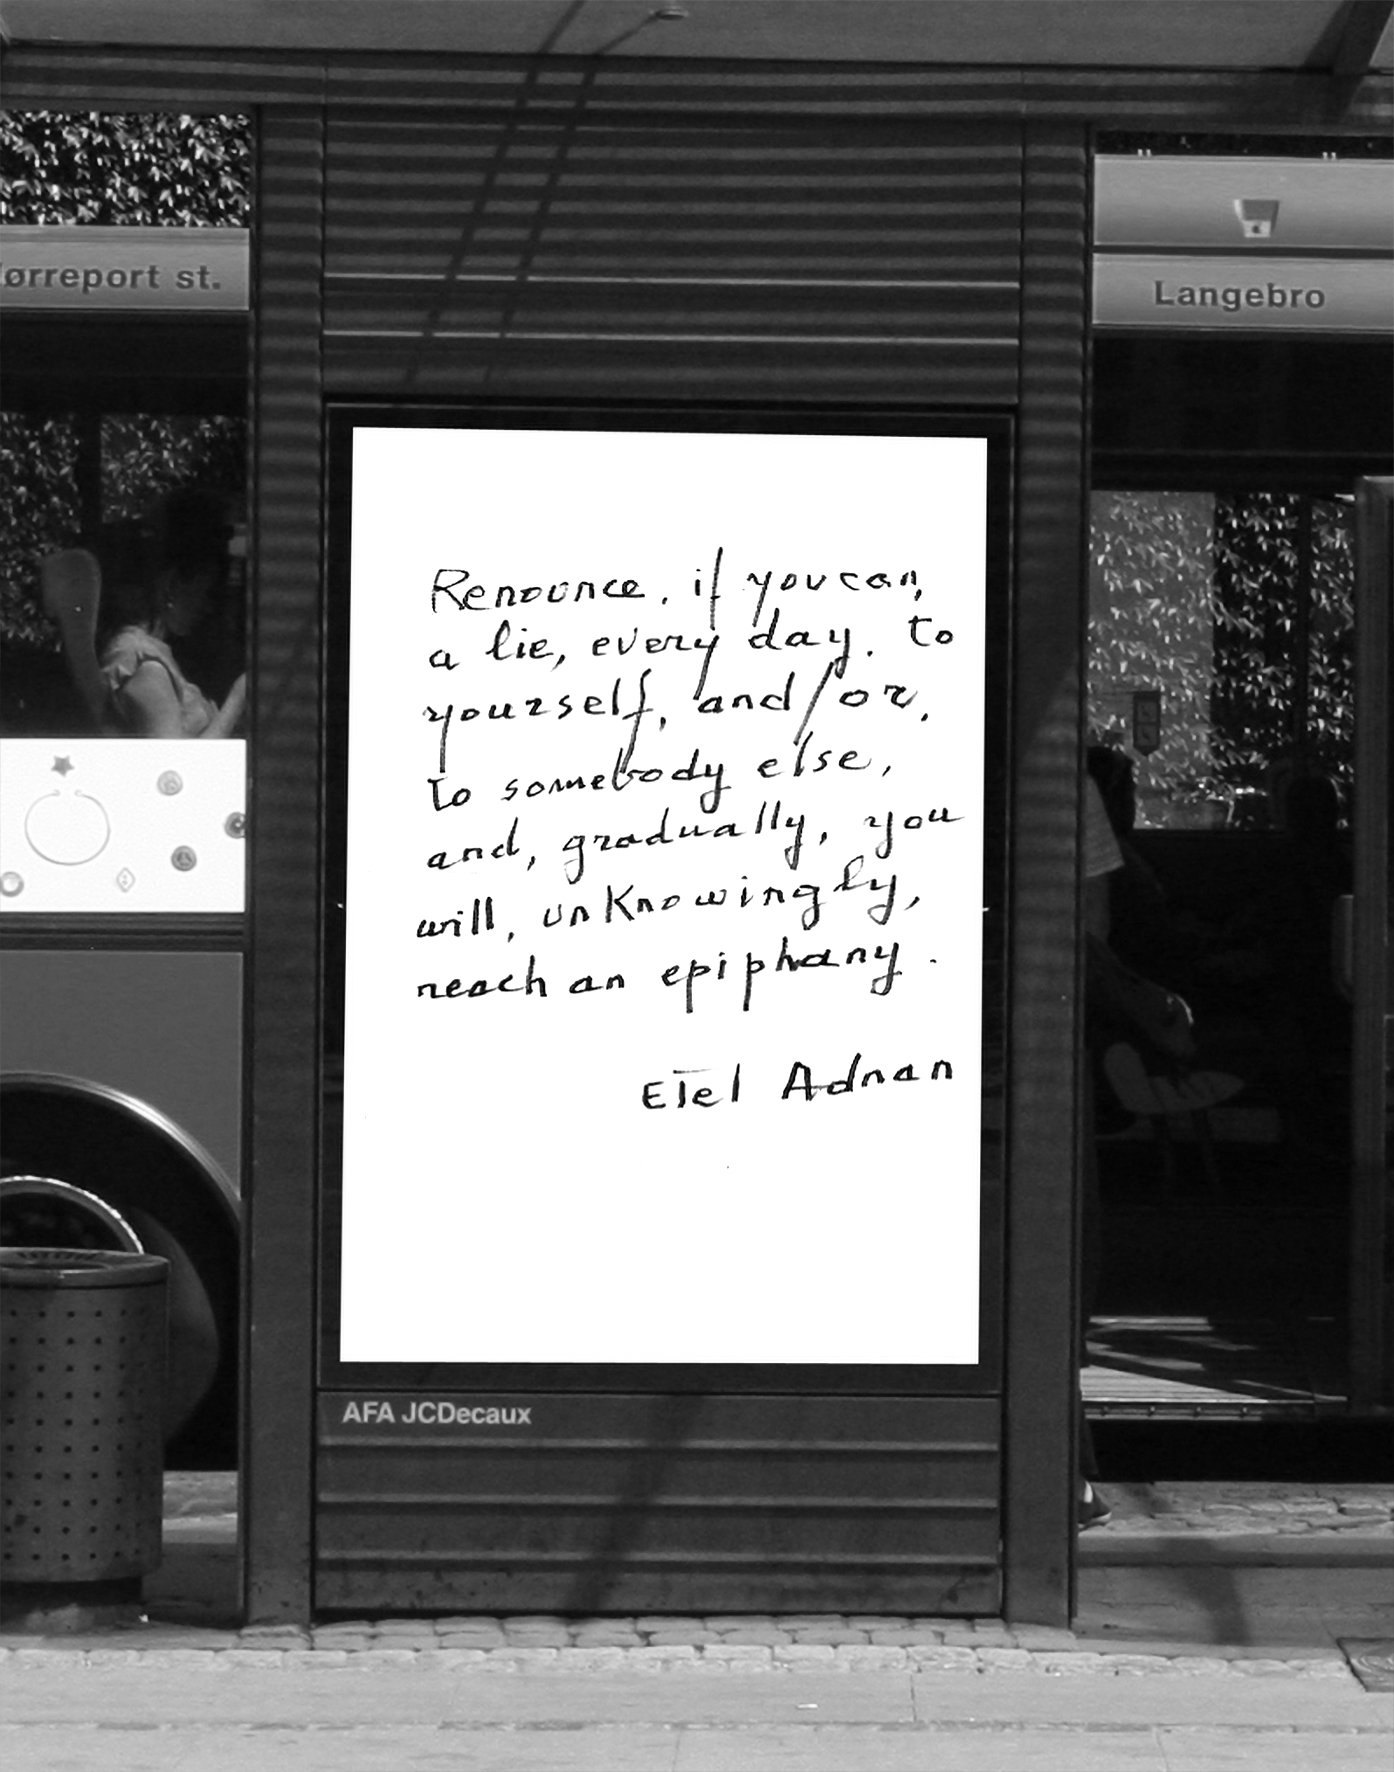 ørreport st.
Langebro
Renounce, if you can,
a lie, every day. To
yourself, and/or,
to somebody else,
and, gradually, you
will, unknowingly,
reach an epiphany.
Etel Adnan
AFA JCDecaux